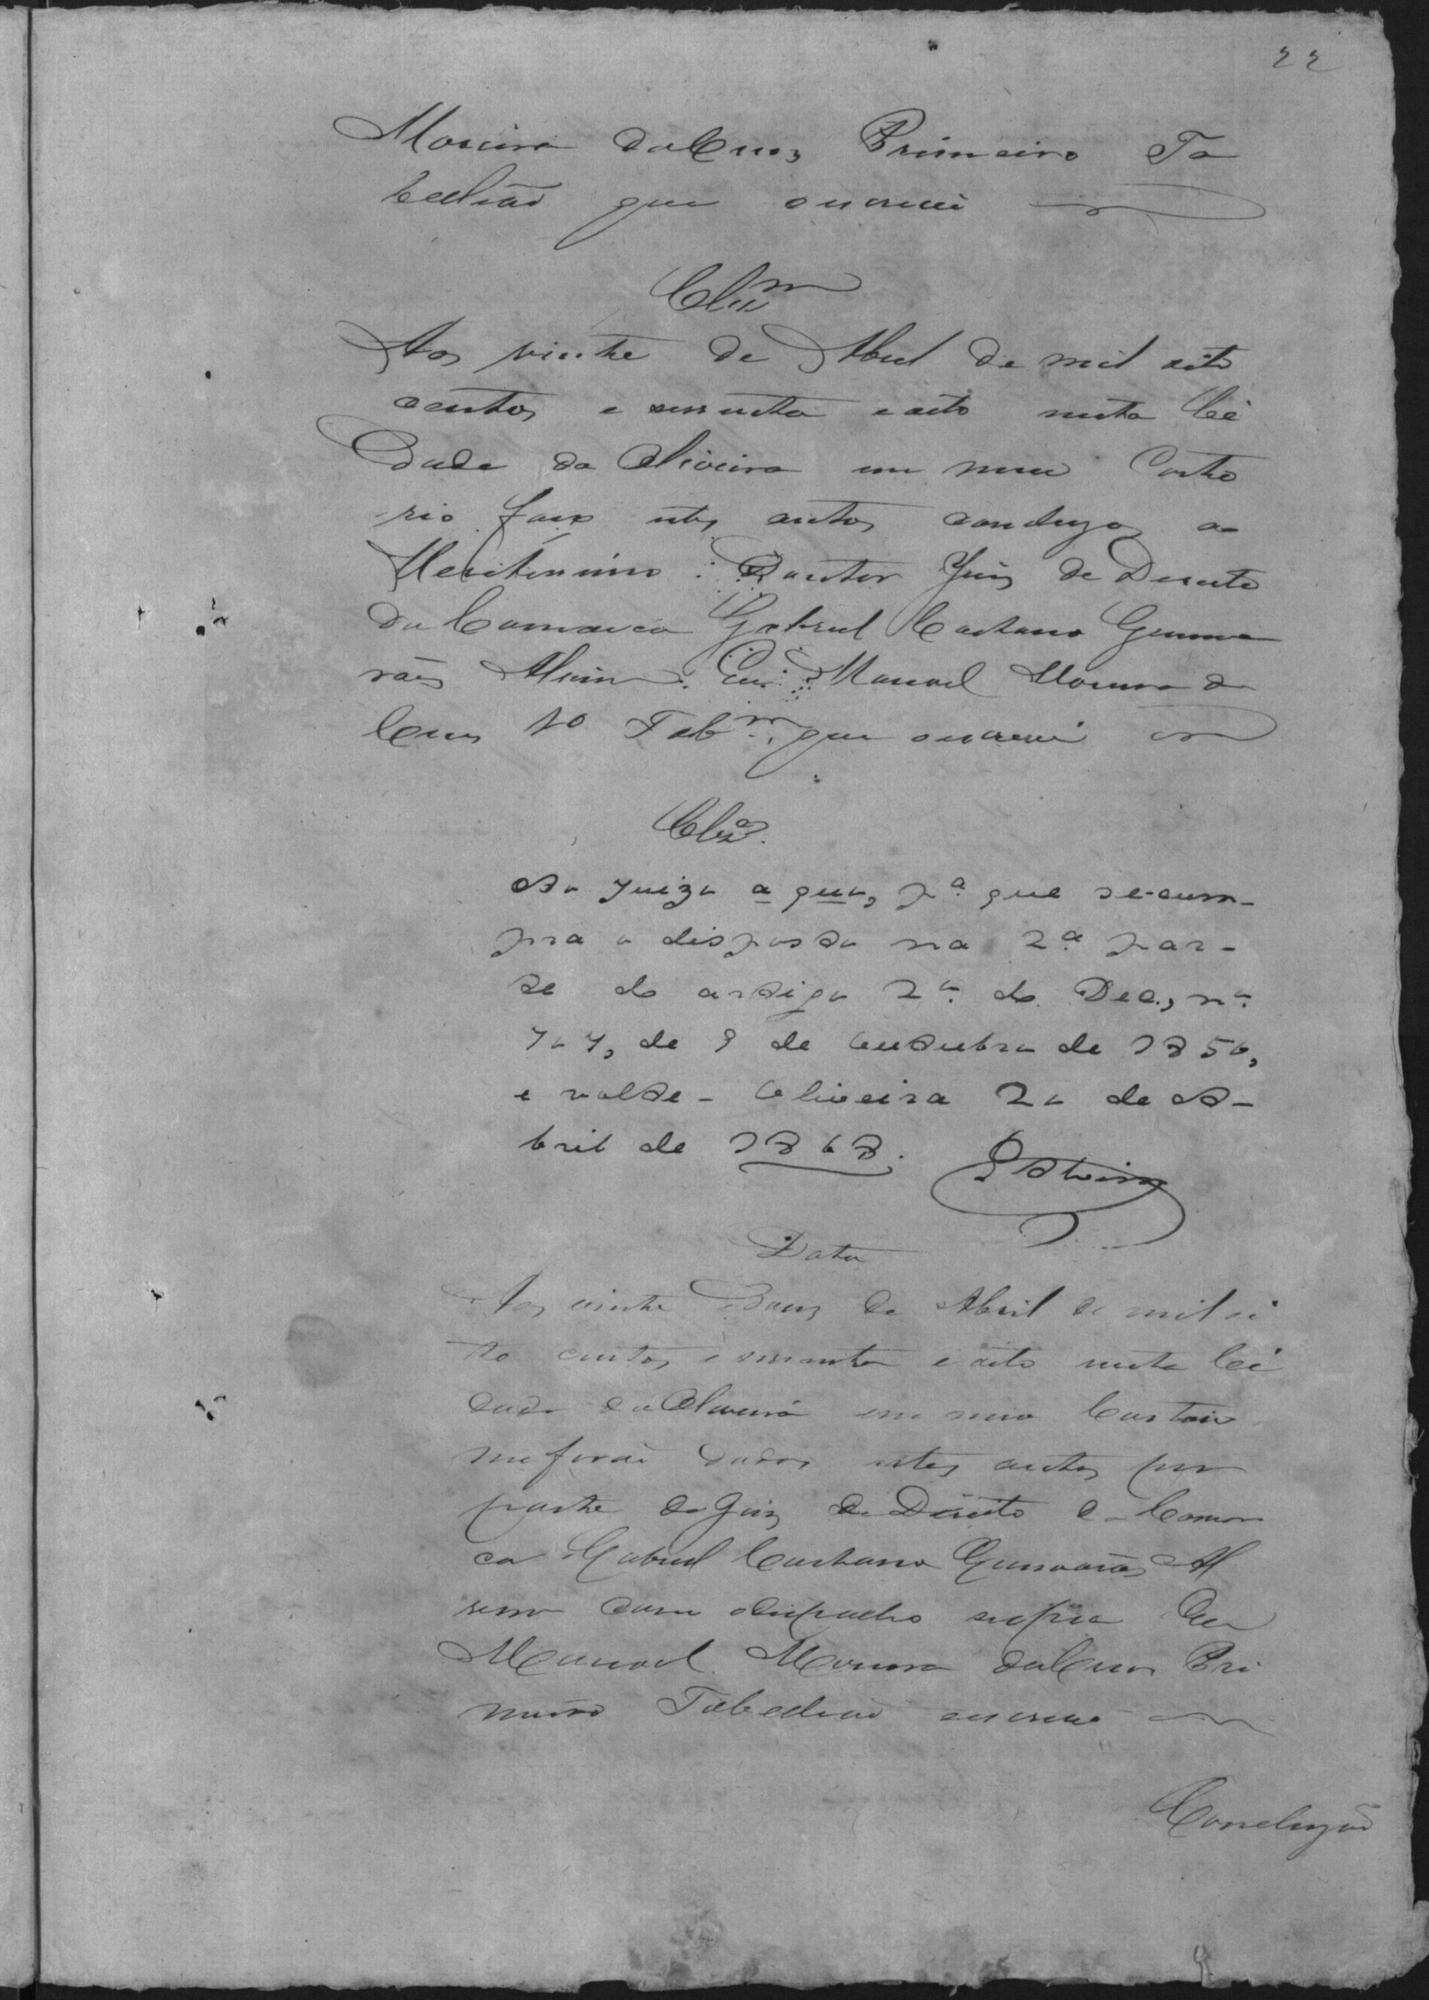 22
Moreira da Cruz Primeiro Ta
bellião que escrevi
Clsm
Aos vinte de Abril de mil oito
centos e sessenta e oito nesta Ci
dade da Oliveira em meu Carto
rio faço estes autos conclusos ao
Meritissimo Doutor Juiz de Direito
da Comarca Gabriel Caetano Guima
rães Alvim. Eu Manoel Moreira da
Cruz 1º Tabm que escrevi
Clsº.
Ao juizo a quo, pª que se cum-
pra o disposto na 2ª par-
te do artigo 2º do Dec., nº
707, de 9 de Outubro de 1850,
e volte - Oliveira 20 de A-
bril de 1868.
G Alvim
Data
Aos vinte dous de Abril de mil oi
to centos e sessenta e oito nesta Ci
dade da Oliveira em meo Cartorio
me forão dados estes autos por
parte do Juiz de Direito da Comar
ca Gabriel Caetano Guimarães Al
vim com despacho supra Eu
Manoel Moreira da Cruz Pri
meiro Tabellião escrevi
Conclusão